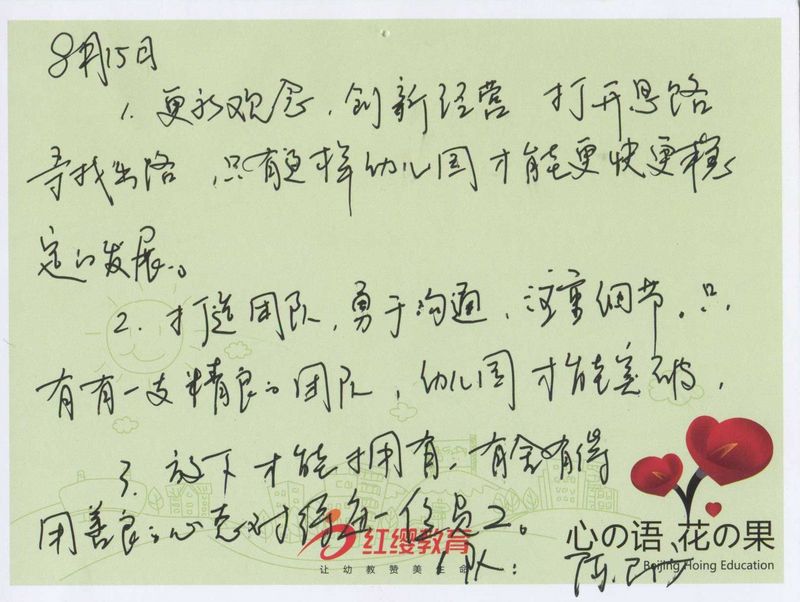 8月15日
1. 更新观念, 创新经营 打开思路
寻找出路, 只有这样幼儿园才能更快更稳
定的发展。
2. 打造团队, 勇于沟通, 注重细节。只
有有一支精良的团队, 幼儿园才能突破。
3. 放下才能拥有。有舍有得
用善良之心态对待每一位员工。
红缨教育
让幼教赞美生命
心の语、花の果
Beijing Hoing Education
陈